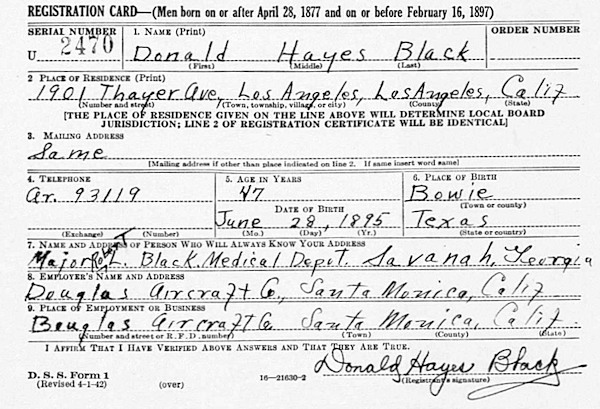 REGISTRATION CARD—(Men born on or after April 28, 1877 and on or before February 16, 1897)
SERIAL NUMBER 1. NAME (Print) ORDER NUMBER
U 2470 Donald Hayes Black
(First) (Middle) (Last)
2 PLACE OF RESIDENCE (Print)
1901 Thayer Ave, Los Angeles, Los Angeles, Calif
(Number and street) (Town, township, village, or city) (County) (State)
[THE PLACE OF RESIDENCE GIVEN ON THE LINE ABOVE WILL DETERMINE LOCAL BOARD
JURISDICTION; LINE 2 OF REGISTRATION CERTIFICATE WILL BE IDENTICAL]
3. MAILING ADDRESS
Same
[Mailing address if other than place indicated on line 2. If same insert word same]
4. TELEPHONE 5. AGE IN YEARS 6. PLACE OF BIRTH
Ar. 93119 47 Bowie
DATE OF BIRTH (Town or county)
June 28, 1895 Texas
(Exchange) (Number) (Mo.) (Day) (Yr.) (State or country)
7. NAME AND ADDRESS OF PERSON WHO WILL ALWAYS KNOW YOUR ADDRESS
Major Robert L. Black. Medical Depot. Savanah, Georgia
8. EMPLOYER'S NAME AND ADDRESS
Douglas Aircraft Co., Santa Monica, Calif
9. PLACE OF EMPLOYMENT OR BUSINESS
Douglas Aircraft Co. Santa Monica, Calif
(Number and street or R. F. D. number) (Town) (County) (State)
I AFFIRM THAT I HAVE VERIFIED ABOVE ANSWERS AND THAT THEY ARE TRUE.
Donald Hayes Black
D. S. S. Form 1 (Registrant's signature)
(Revised 4-1-42) (over) 16—21630-2